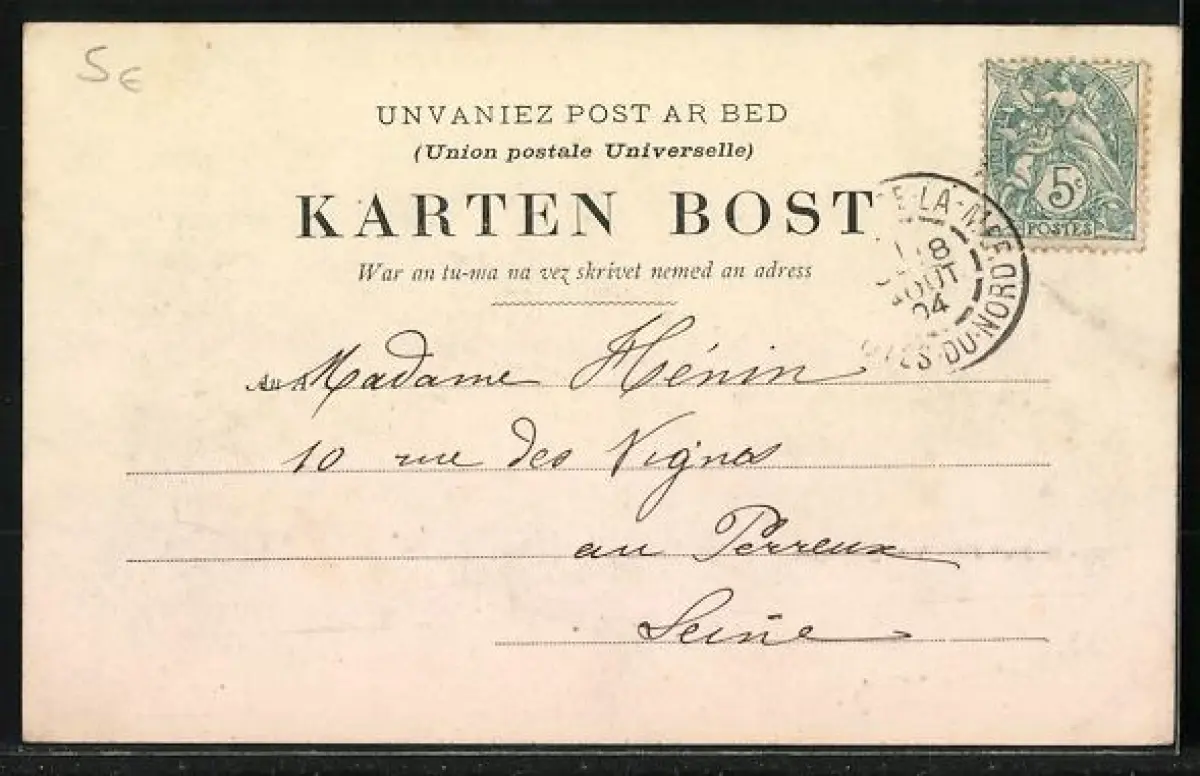 5€
UNVANIEZ POST AR BED
(Union postale Universelle)
KARTEN BOST
War an tu-ma na vez skrivet nemed an adress
5c
POSTES
LA-M
18
AOUT
04
DU-NORD
Madame Hénin
10 rue des Vignes
au Perreux
Seine